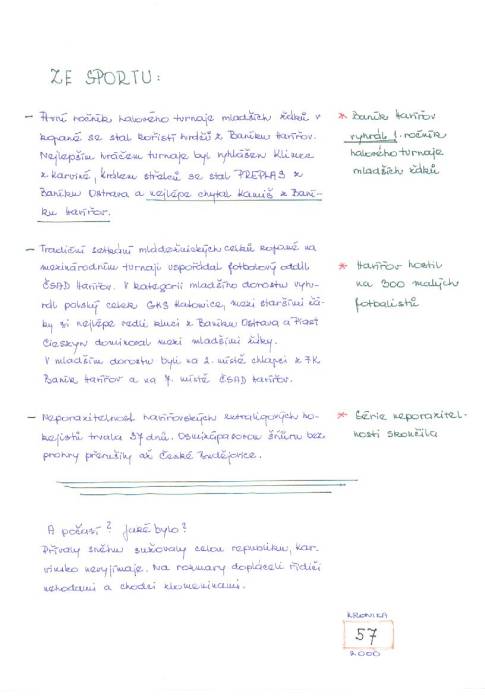 ZE SPORTU:
- První ročník halového turnaje mladších žáků v
kopané se stal kořistí hráčů z Baníku Havířov.
Nejlepším hráčem turnaje byl vyhlášen Klimek
z Karviné, králem střelců se stal PREPLAS z
Baníku Ostrava a nejlépe chytal Kamiš z Baní-
ku Havířov.
* Baník Havířov
vyhrál 1. ročník
halového turnaje
mladších žáků
- Tradiční setkání mládežnických celků kopané na
mezinárodním turnaji uspořádal fotbalový oddíl
ČSAD Havířov. V kategorii mladšího dorostu vyhr-
rál polský celek GKS Katowice, mezi staršími žá-
ky si nejlépe vedli kluci z Baníku Ostrava a Piast
Cieszyn dominoval mezi mladšími žáky.
V mladším dorostu byli na 2. místě chlapci z FK
Baník Havířov a na 7. místě ČSAD Havířov.
* Havířov hostil
na 300 malých
fotbalistů
- Neporazitelnost havířovských extraligových ho-
kejistů trvala 37 dnů. Osmizápasovou šňůru bez
prohry přerušily až České Budějovice.
* Série neporazitel-
nosti skončila
A počasí? Jaké bylo?
Přívaly sněhu sužovaly celou republiku, Kar-
vinsko nevyjímaje. Na rozmary dopláceli řidiči
nehodami a chodci zlomeninami.
KRONIKA
57
2000